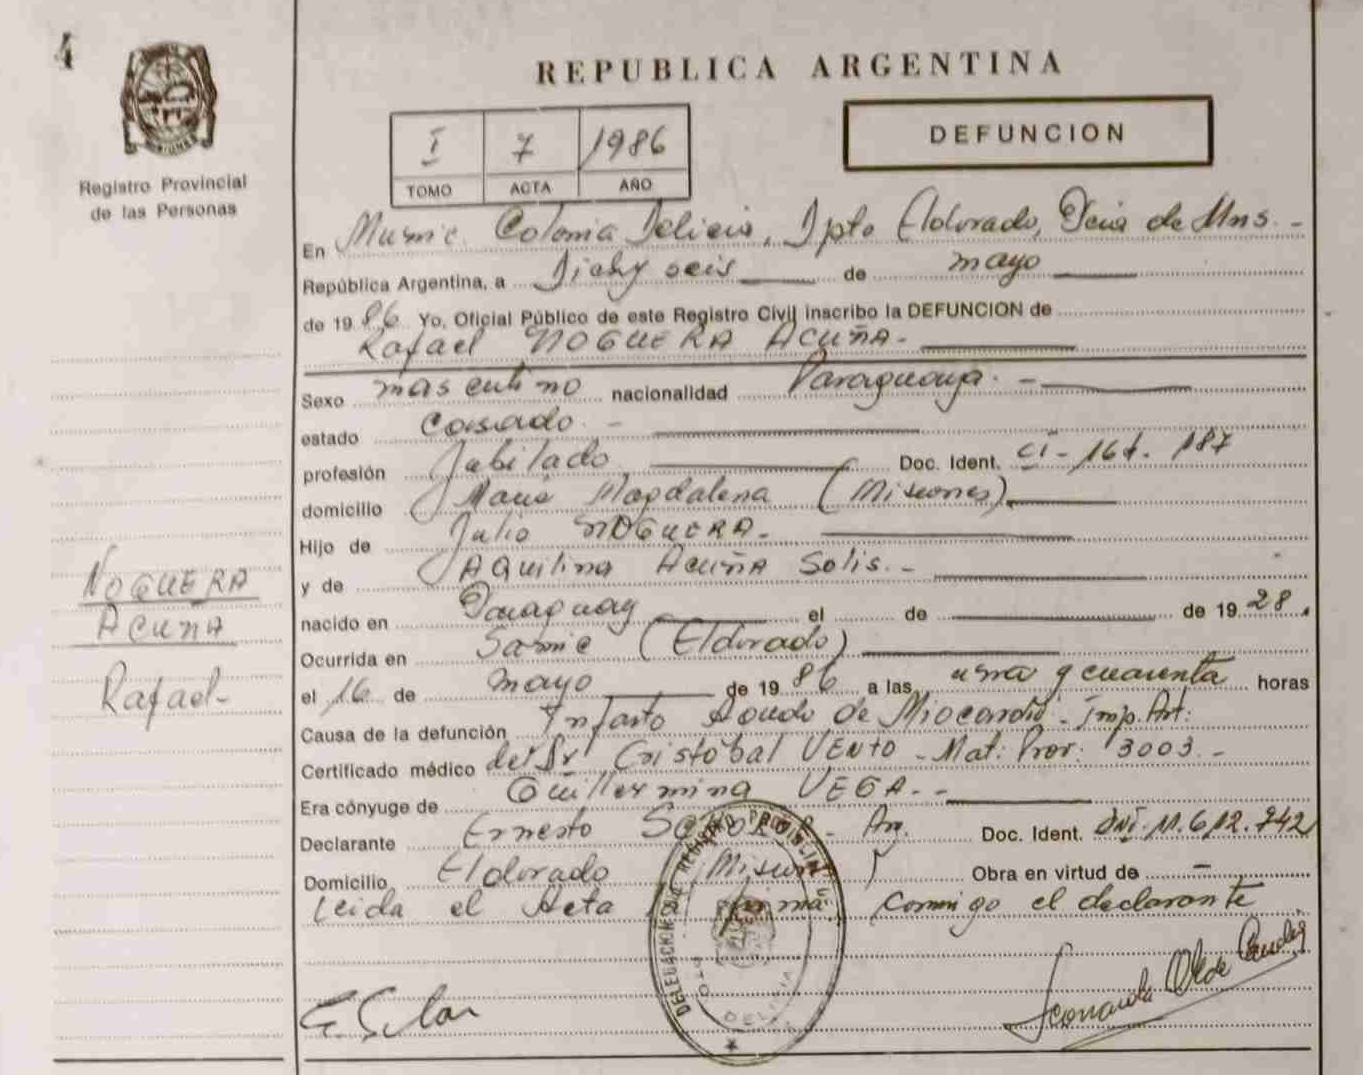 4
REPUBLICA ARGENTINA
I 7 1986
TOMO ACTA AÑO
DEFUNCION
Registro Provincial
de las Personas
En Munic. Colonia Delicia, Dpto Eldorado, Pcia de Mns. -
República Argentina, a Diecy seis de mayo
de 1986 Yo, Oficial Público de este Registro Civil inscribo la DEFUNCION de
Rafael NOGUERA ACUÑA.-
Sexo masculino nacionalidad Paraguaya. -
estado Casado. -
profesión Jubilado Doc. Ident. CI-161.187
domicilio María Magdalena (Misiones).
Hijo de Julio NOGUERA.
y de AQuilina ACUÑA Solis.-
nacido en Paraguay el de de 1928.
Ocurrida en (Eldorado)
el 16 de mayo de 1986 a las una y cuarenta horas
Causa de la defunción Infarto Agudo de Miocardio. Imp. Art:
Certificado médico del Dr Cristóbal VENTO - Mat: Prov: 3003.-
Era cónyuge de Guillermina VEGA.-
Declarante Ernesto Doc. Ident. DNI.11.612.742
Domicilio Eldorado Misiones Obra en virtud de -
Leida el Acta firma Conmigo el declarante
NOGUERA
ACUNA
Rafael-